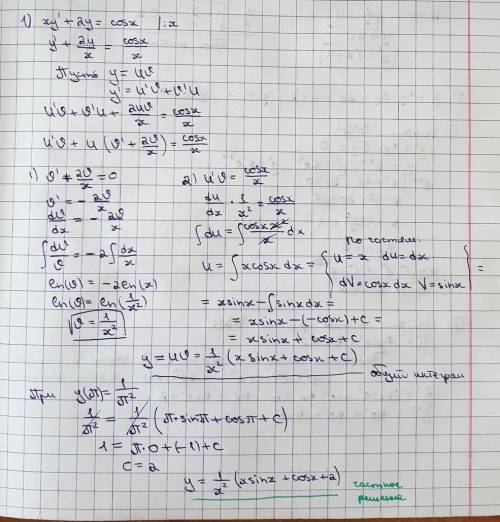 1) xy' + 2y = cosx |:x
y' + 2y/x = cosx/x
Пусть y = uϑ
y' = u'ϑ + ϑ'u
u'ϑ + ϑ'u + 2uϑ/x = cosx/x
u'ϑ + u (ϑ' + 2ϑ/x) = cosx/x
1) ϑ' + 2ϑ/x = 0
ϑ' = - 2ϑ/x
dϑ/dx = - 2ϑ/x
∫ dϑ/ϑ = -2 ∫ dx/x
ln(ϑ) = -2ln(x)
ln(ϑ) = ln(1/x²)
ϑ = 1/x²
2) u'ϑ = cosx/x
du/dx · 1/x² = cosx/x
∫ du = ∫ cosx x²/x dx
по частям:
u = ∫ xcosx dx = { u = x du = dx
dV = cosx dx V = sinx } =
= xsinx - ∫ sinx dx =
= xsinx - (-cosx) + c =
= xsinx + cosx + c
y = uϑ = 1/x² (xsinx + cosx + c)
общий интеграл
При y(π) = 1/π²
1/π² = 1/π² (π·sinπ + cosπ + c)
1 = π·0 + (-1) + c
c = 2
y = 1/x² (xsinx + cosx + 2)
частное
решение